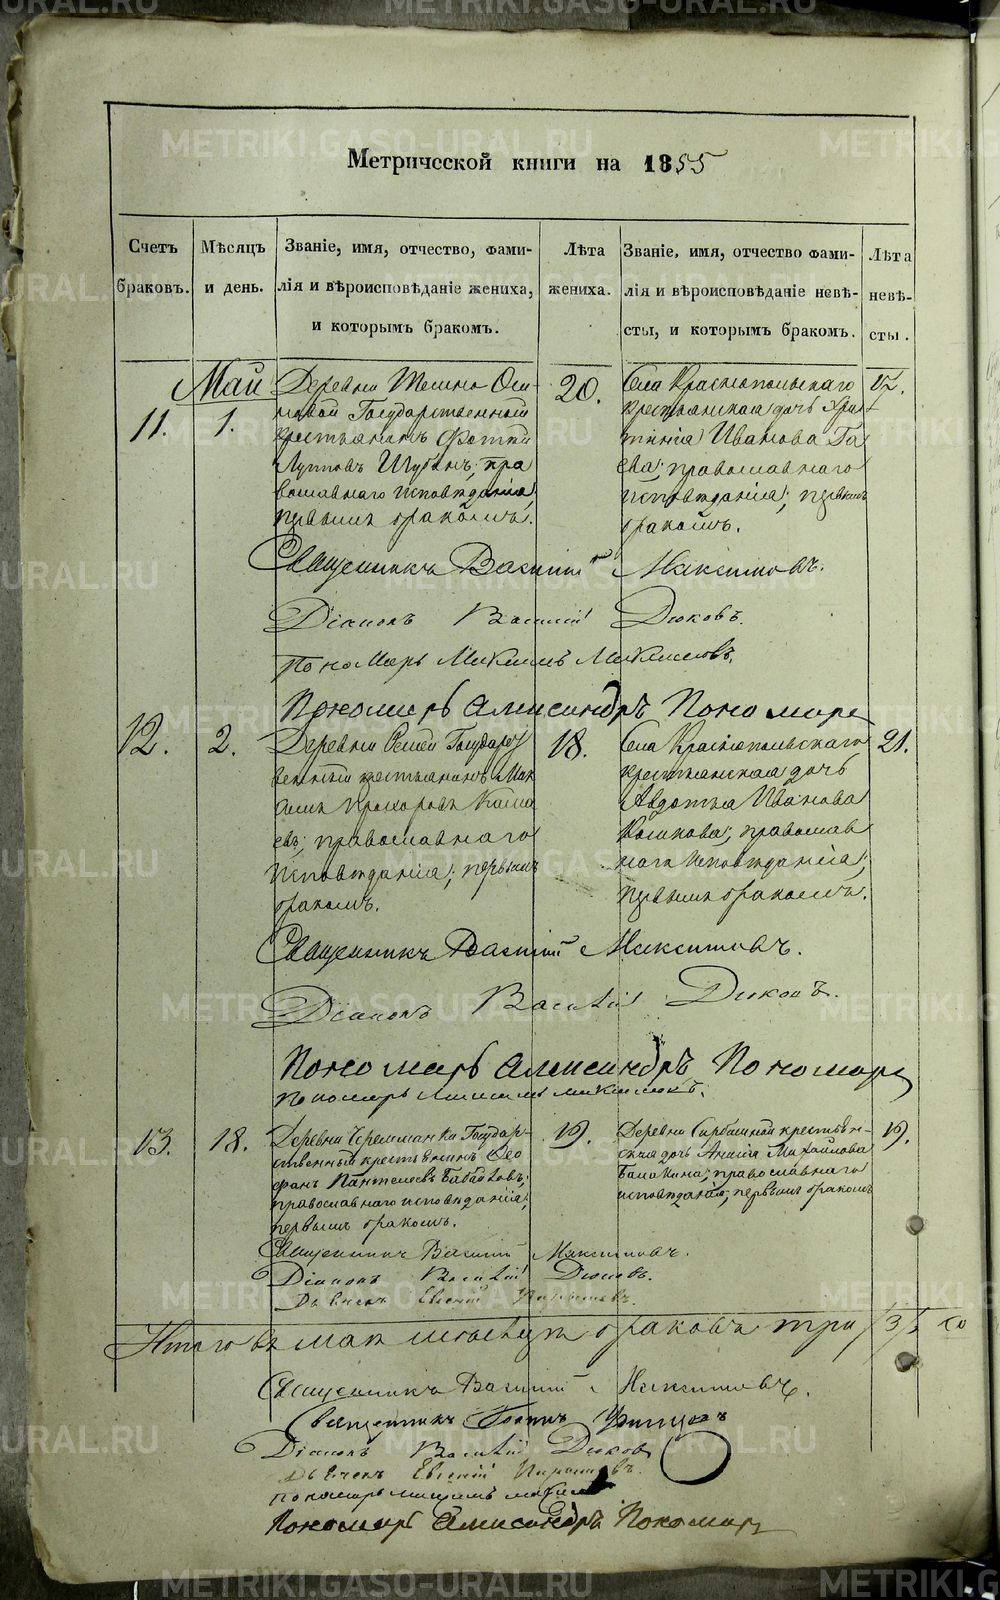 METRIKI.GASO-URAL.RU
Метрической книги на 1855
Счетъ браковъ.
Мѣсяцъ и день.
Званіе, имя, отчество, фами-
лія и вѣроисповѣданіе жениха,
и которымъ бракомъ.
Лѣта жениха.
Званіе, имя, отчество фами-
лія и вѣроисповѣданіе невѣ-
сты, и которымъ бракомъ.
Лѣта невѣ-
сты.
Май
11.
1.
Деревни
новой Государственный
крестьянинъ
православнаго исповѣданія,
первымъ бракомъ.
20.
Села Краснопольскаго
крестьянская дочь Хри-
стинія Иванова Га
ева; православнаго
исповѣданія; первымъ
бракомъ.
17.
Священникъ Василій Максимовъ.
Діаконъ Василій Дюковъ.
Пономарь
Пономарь Александръ Пономарев
12.
2.
Деревни Государст
венный крестьянинъ Мак
симъ Прохоровъ
евъ; православнаго
исповѣданія; первымъ
бракомъ.
18.
Села Краснопольскаго
крестьянская дочь
Авдотья Иванова
православ
наго исповѣданія;
первымъ бракомъ.
21.
Священникъ Василій Максимовъ.
Діаконъ Василій Дюковъ.
Пономарь Александръ Пономарев
Пономарь
13.
18.
Деревни Черемшанки Государ-
ственный крестьянинъ Фео
фанъ Пантелеевъ Бабайловъ;
православнаго исповѣданія;
первымъ бракомъ.
19.
Деревни крестьян-
ская дочь Анисія Михайлова
Балакина; православнаго
исповѣданія; первымъ бракомъ
19.
Священникъ Василій Максимовъ.
Діаконъ Василій Дюковъ.
Дьячекъ Евгеній
Итого въ маѣ мѣсяцѣ браковъ три /3/
Священникъ Василій Максимовъ.
Священникъ
Діаконъ Василій Дюков
Дьячекъ Евгеній
Пономарь
Пономарь Александръ Пономарев